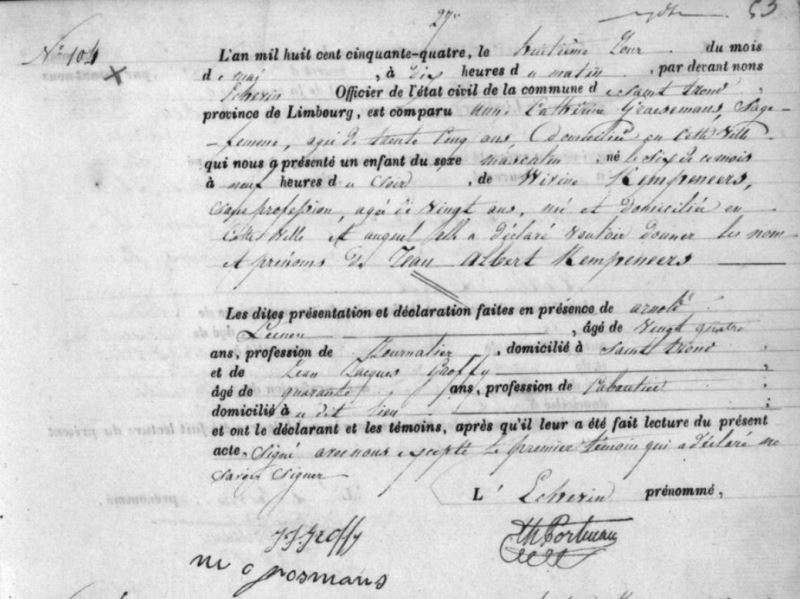 27e
53
No 104
L'an mil huit cent cinquante-quatre, le huitième Jour du mois
d e mai , à dix heures d u matin , par devant nous
Echevin Officier de l'état civil de la commune d e Saint trond ,
province de Limbourg, est comparu anne Catherine Graesemans, Sage
-femme, agée de trente Cinq ans, Domiciliée en Cette Ville
qui nous a présenté un enfant du sexe masculin , né le six de ce mois
à neuf heures d u Soir , de Kempeneers,
Sans profession, agée de Vingt ans, née et domiciliée en
Cette Ville et auquel elle a déclaré Vouloir donner les nom
et prénoms de Jean Albert Kempeneers
Les dites présentation et déclaration faites en présence de arnold
, âgé de Vingt quatre
ans, profession de Journalier , domicilié à Saint trond ,
et de Jean Jacques Groffy ,
âgé de quarante ans, profession de Cabaretier ,
domicilié à u dit lieu ;
et ont le déclarant et les témoins, après qu'il leur a été fait lecture du présent
acte, Signé avec nous excepté le premier témoin qui a déclaré ne
Savoir Signer
L' Echevin prénommé,
J J Groffy